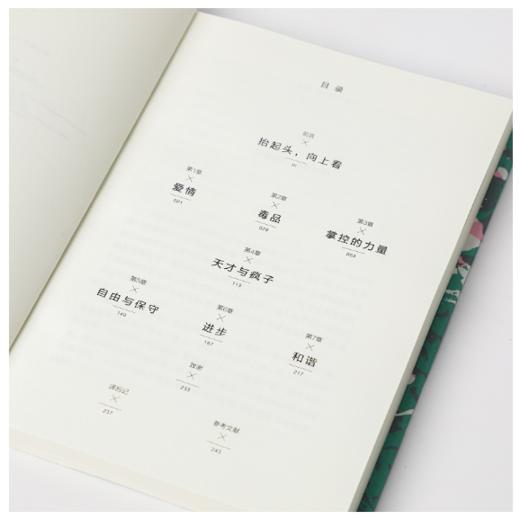 目录
前言
抬起头，向上看
第1章
爱情
001
第2章
毒品
029
第3章
掌控的力量
第4章
天才与疯子
113
第5章
自由与保守
140
第6章
进步
187
第7章
和谐
217
致谢
233
译后记
237
参考文献
243